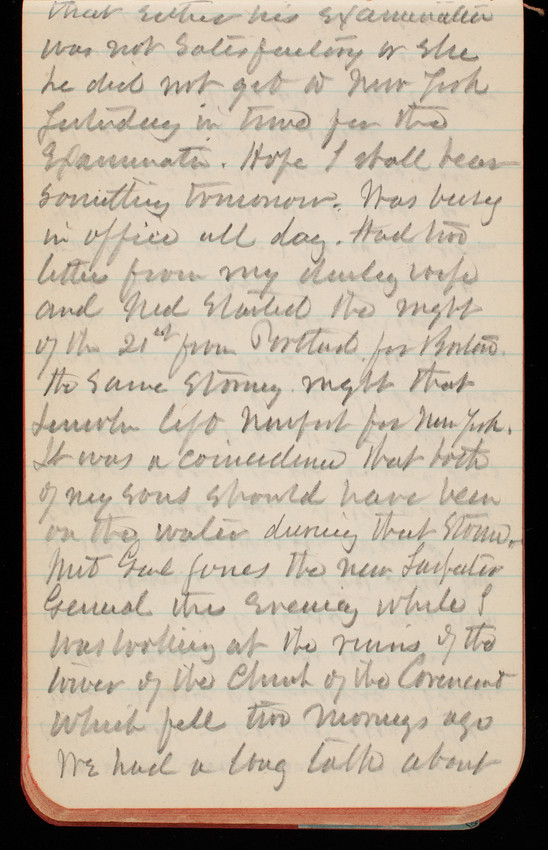 that either his Examination
was not Satisfactory or Else
he did not get to New York
Yesterday in time for the
Examination. Hope I shall hear
Something tomorrow. Was busy
in office all day. Had two
letters from my darling wife
and Ned Started the night
of the 21st from Portland for Boston.
the Same Stormy night that
Lincoln left Newport for New York.
It was a coincidence that both
of my sons should have been
on the water during that Storm.
Met Genl Jones the new Inspector
General this Evening while I
was looking at the ruins of the
tower of the Church of the Covenant
which fell two mornings ago
We had a long talk about